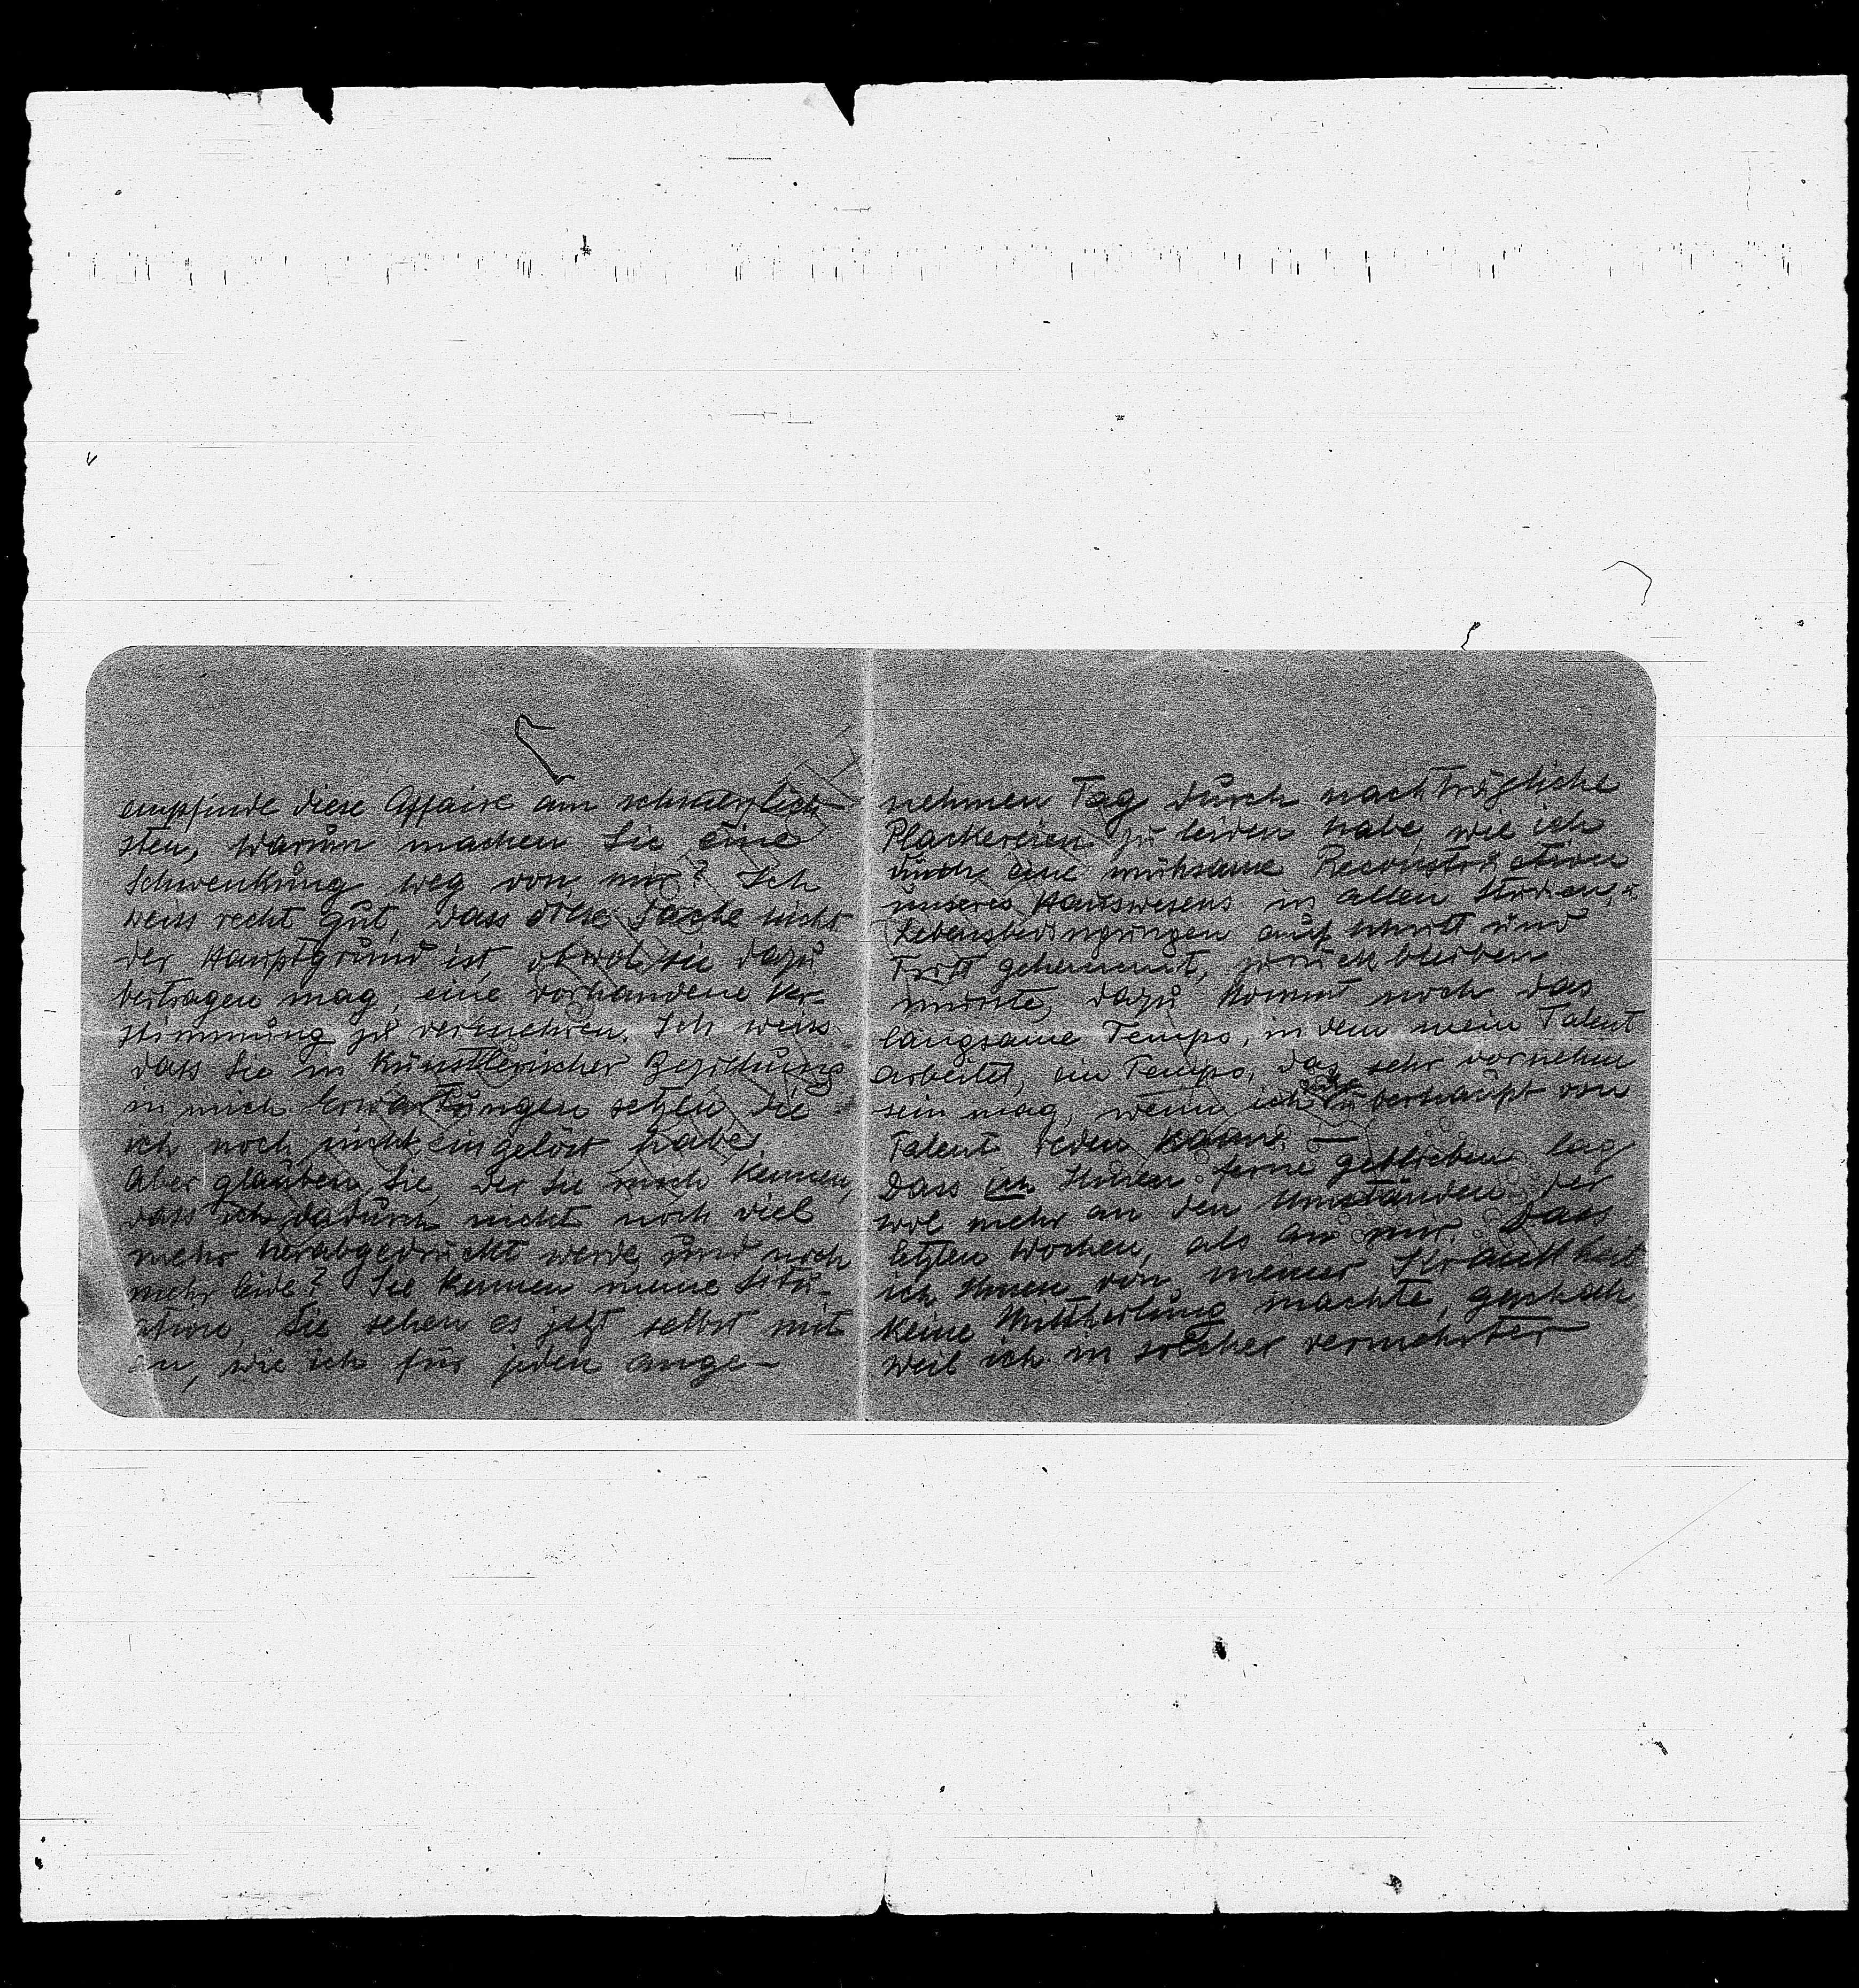 empfinde diese Affaire am schmerzlich
sten, warum machen Sie eine
Schwenkung weg von mir? Ich
weiss recht gut, dass diese Sache nicht
der Hauptgrund ist, obwol sie dazu
beitragen mag, eine vorhandene Ver-
stimmung zu vermehren. Ich weiss
dass Sie in künstlerischer Beziehung
in mich Erwartungen setzten die
ich noch nicht eingelöst habe.
Aber glauben Sie, der Sie mich kennen,
dass ich dadurch nicht noch viel
mehr herabgedrückt werde und noch
mehr leide? Sie kennen meine Situ-
ation, Sie sehen es jetzt selbst mit
an, wie ich für jeden ange-
nehmen Tag durch nachträgliche
Plackereien zu leiden habe, wie ich
durch eine mühsame Reconstruction
unseres Hauswesens in allen Studien, u.
Lebensbedingungen auf Schritt und
Tritt gehemmt, zurückbleiben
musste, dazu kommt noch das
langsame Tempo, in dem mein Talent
arbeitet, ein Tempo, das sehr vornehm
sein mag, wenn ich überhaupt von
Talent reden kann. —
Dass ich Ihnen ferne geblieben lag
wol mehr an den Umständen der
letzten Wochen, als an mir. Dass
ich Ihnen von meiner Krankheit
keine Mittheilung machte, geschah
weil ich in solcher vermehrter